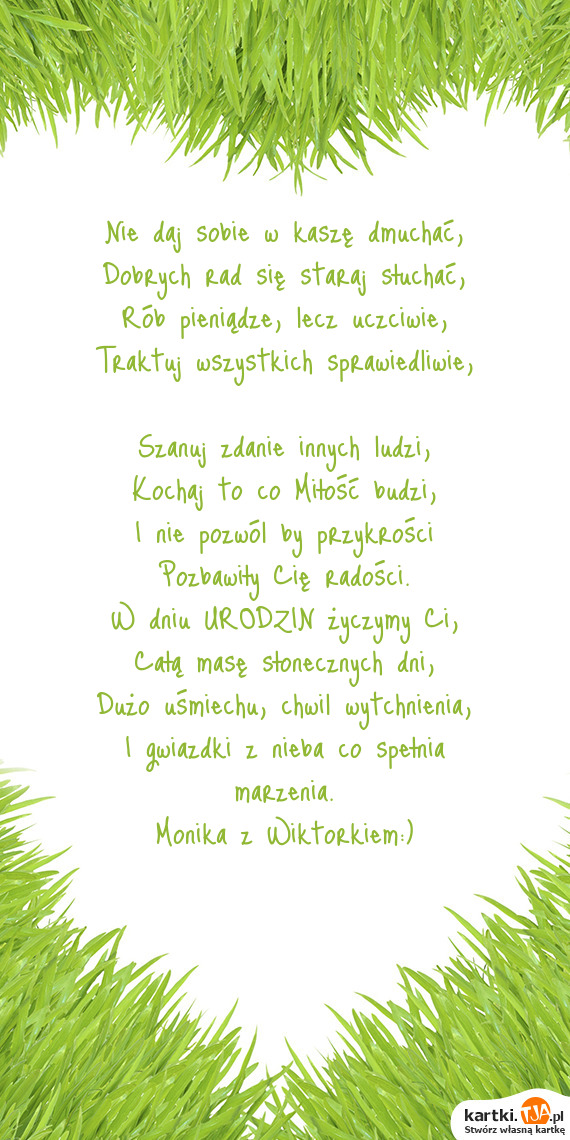 Nie daj sobie w kaszę dmuchać,
Dobrych rad się staraj słuchać,
Rób pieniądze, lecz uczciwie,
Traktuj wszystkich sprawiedliwie,
Szanuj zdanie innych ludzi,
Kochaj to co Miłość budzi,
I nie pozwól by przykrości
Pozbawiły Cię radości.
W dniu URODZIN życzymy Ci,
Całą masę słonecznych dni,
Dużo uśmiechu, chwil wytchnienia,
I gwiazdki z nieba co spełnia
marzenia.
Monika z Wiktorkiem:)
kartki.TJA.pl
Stwórz własną kartkę